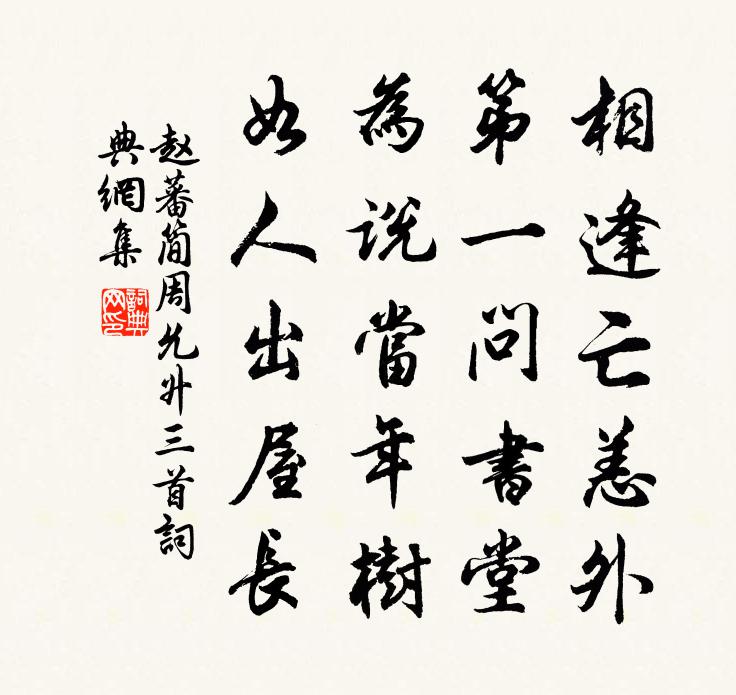 相逢亡恙外
第一問書堂
為說當年樹
如人出屋長
赵蕃簡周允升三首詞
典網集
詞典網印